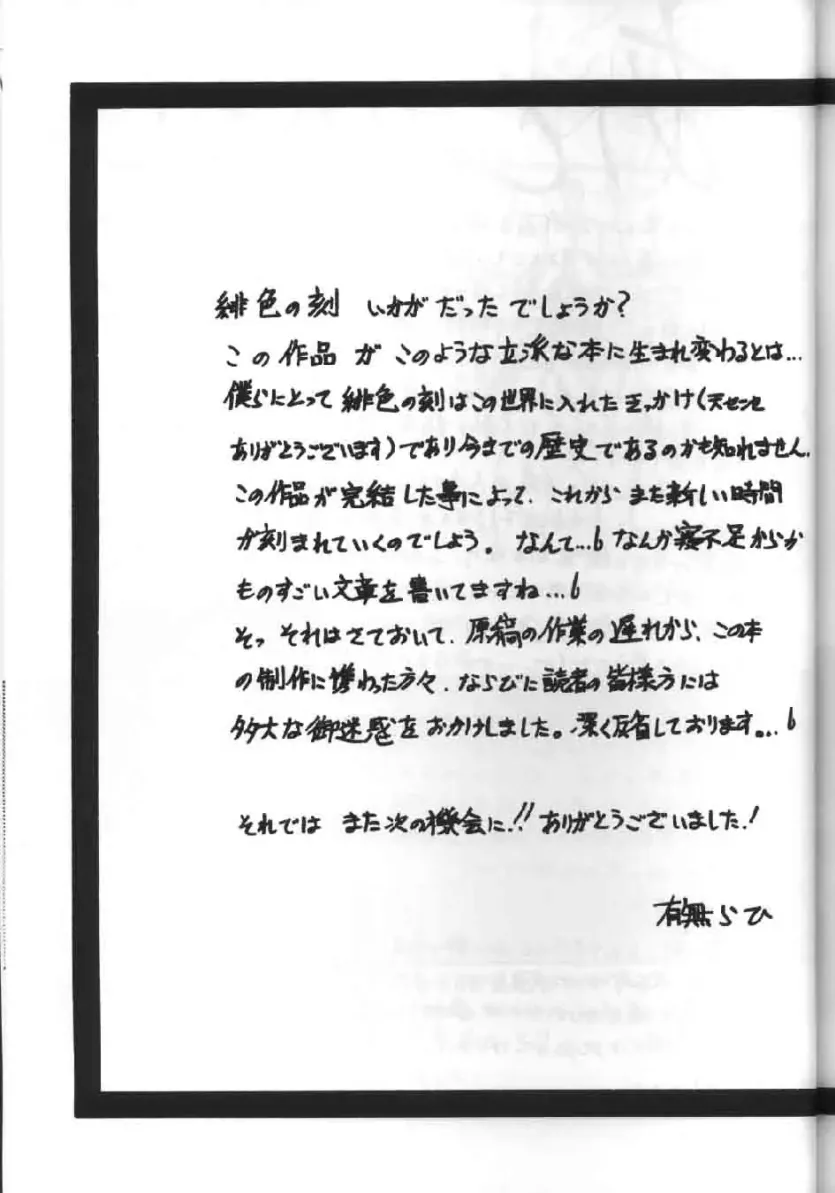 緋色の刻 いかがだったでしょうか?
この作品が このような立派な本に生まれ変わるとは...
僕らにとって 緋色の刻はこの世界に入れたきっかけ(天センセ
ありがとうございます)であり今までの歴史であるのかも知れません.
この作品が完結した事によって、これから また新しい時間
が刻まれていくのでしょう。なんて...6 なんか寝不足からか
ものすごい文章を書いてますね...6
そっ それはさておいて、原稿の作業の遅れから、この本
の制作に携わった方々、ならびに読者の皆様方には
多大な御迷惑をおかけしました。深く反省しております。..6
それでは また次の機会に!! ありがとうございました!
有無らひ